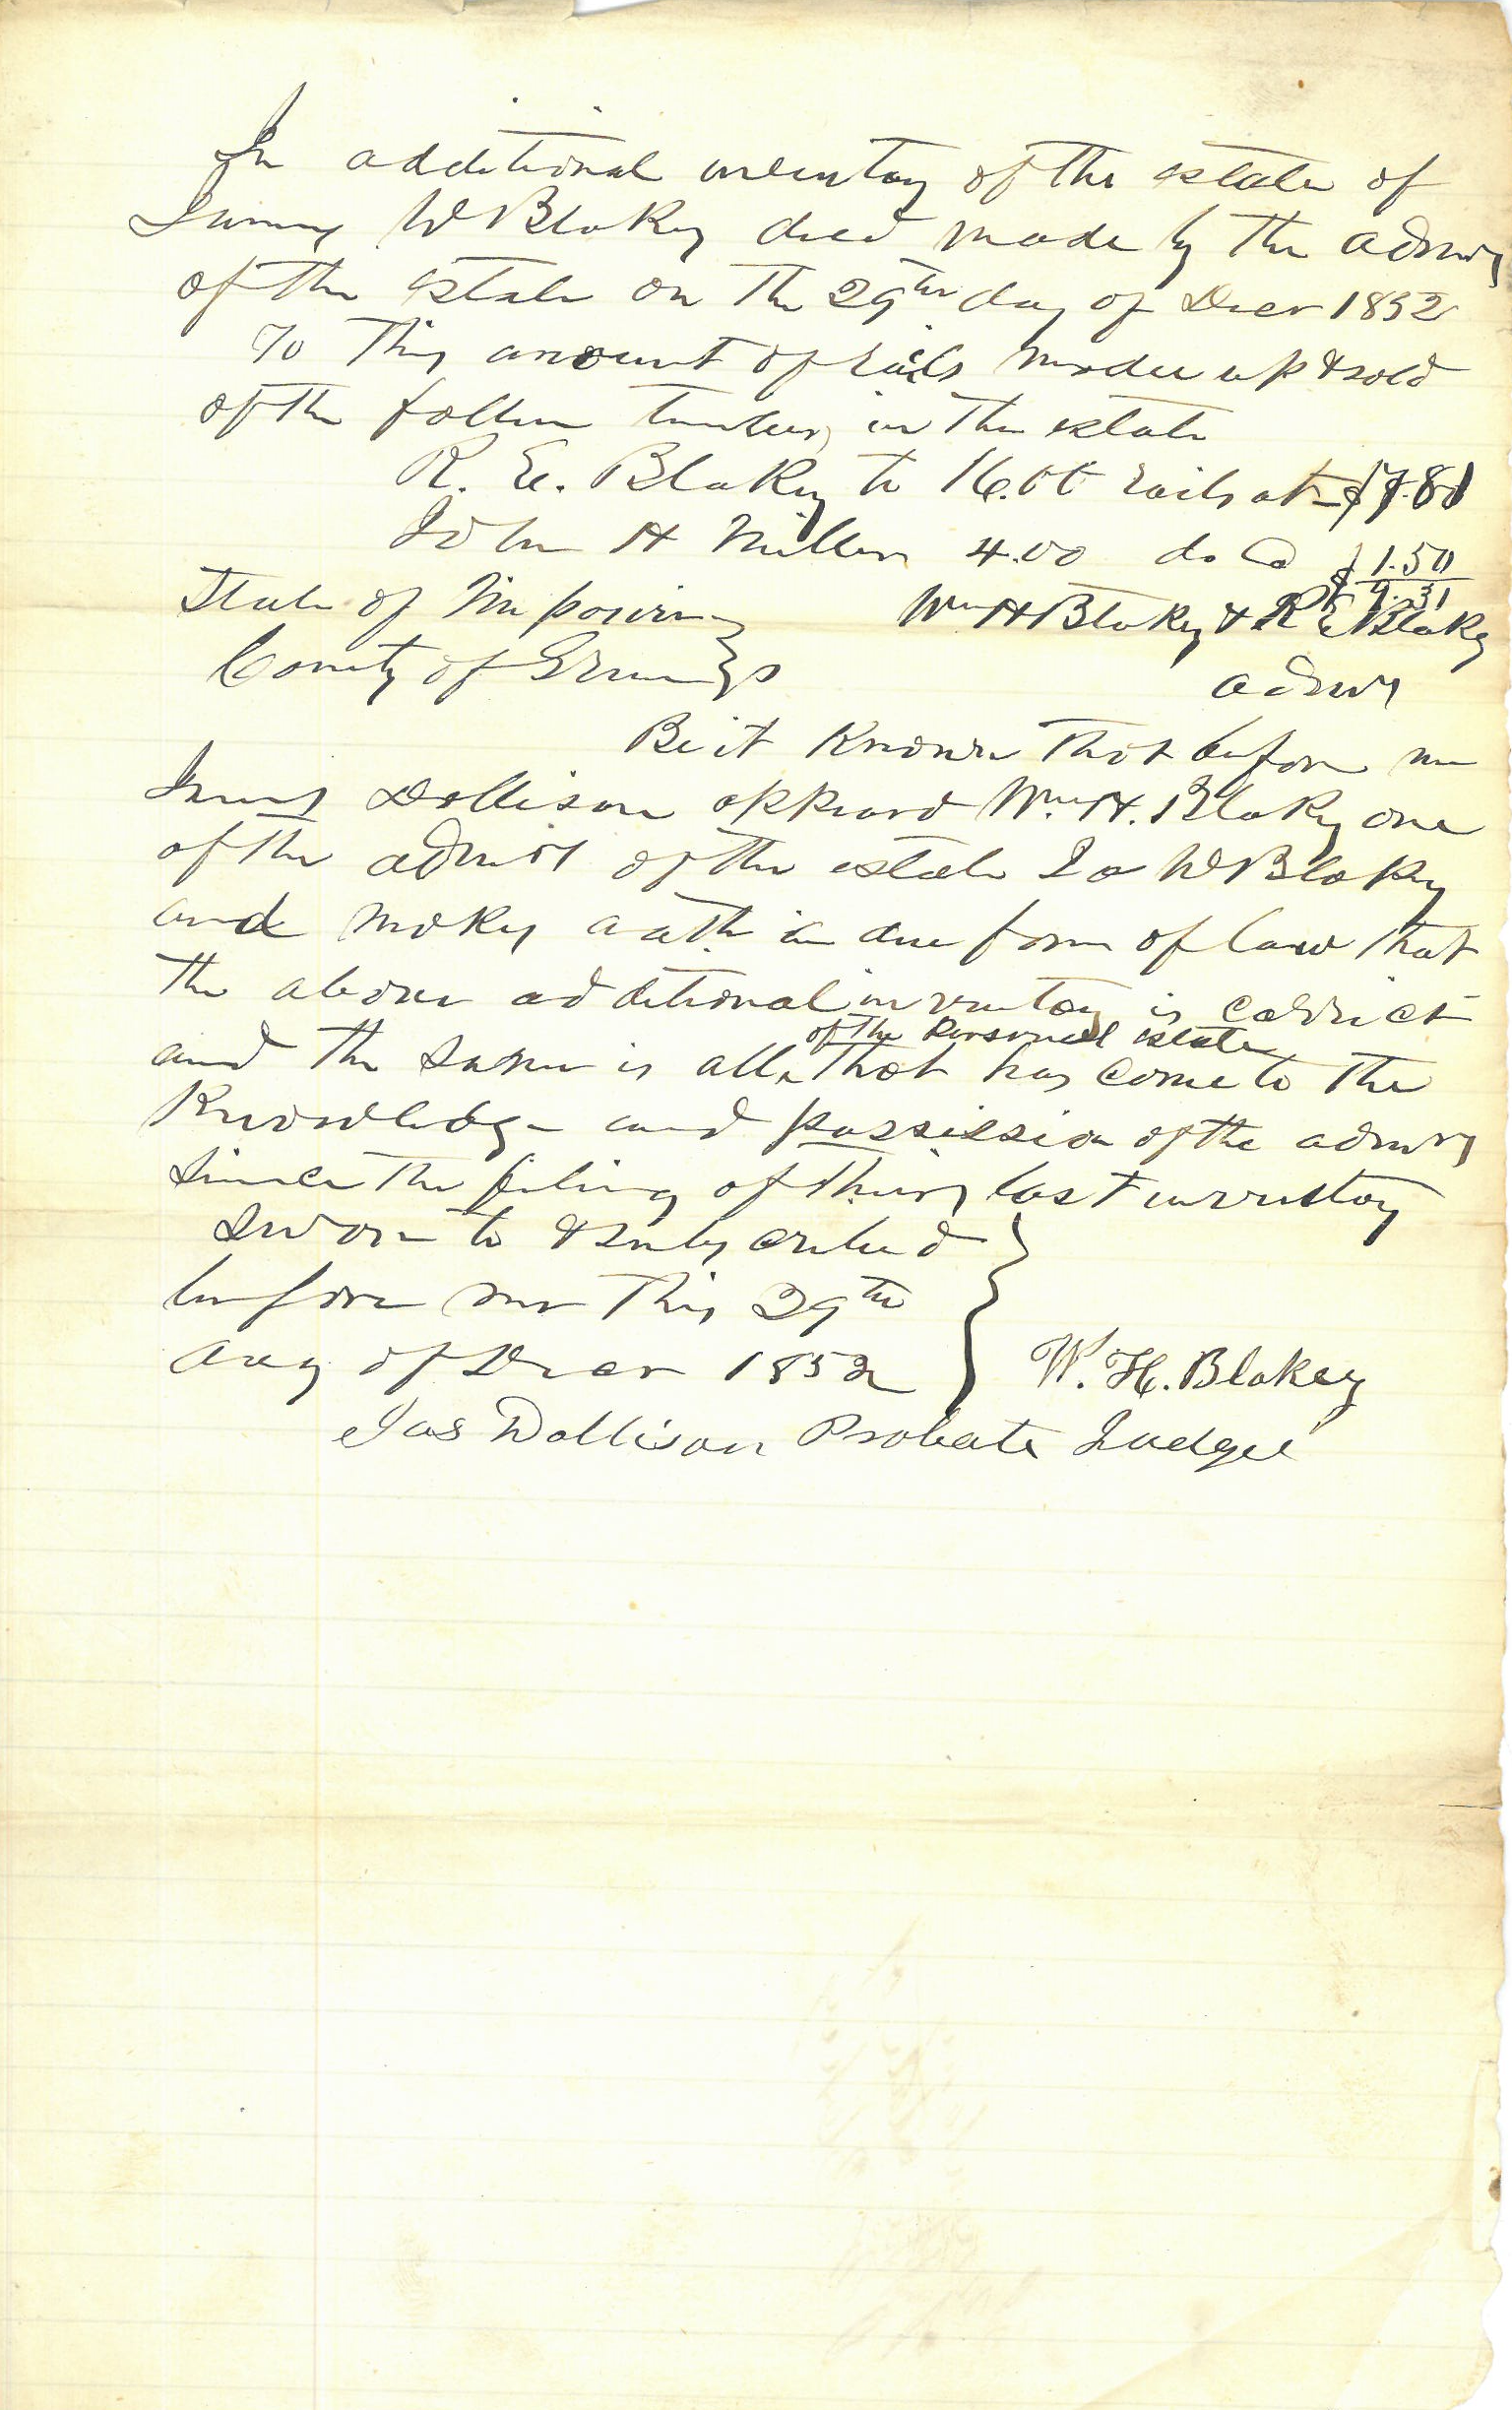 An additional inventory of the estate of
James W Blakey decd made by the admrs
of the estate on the 29th day of Decr 1852
To this amount of rails made up & sold
of the fallen timber in the estate
R. E. Blakey to 16.00 rails at $7.81
John H Miller 4.00 do @ $1.50
$9.31
State of Missouri } Wm H Blakey & R E Blakey
County of Greene } s admrs
Be it Known that before me
James Dollison appeard Wm H. Blakey one
of the admrs of the estate Jas W Blakey
and makes oath in due form of law that
the above additional inventory is correct
of the personal estate
and the same is all ^ that has come to the
Knowledge and possession of the admrs
since the filing of their last inventory
Sworn to & subscribed }
before me this 29th
day of Decr 1852 } W. H. Blakey
Jas Dollison Probate Judge